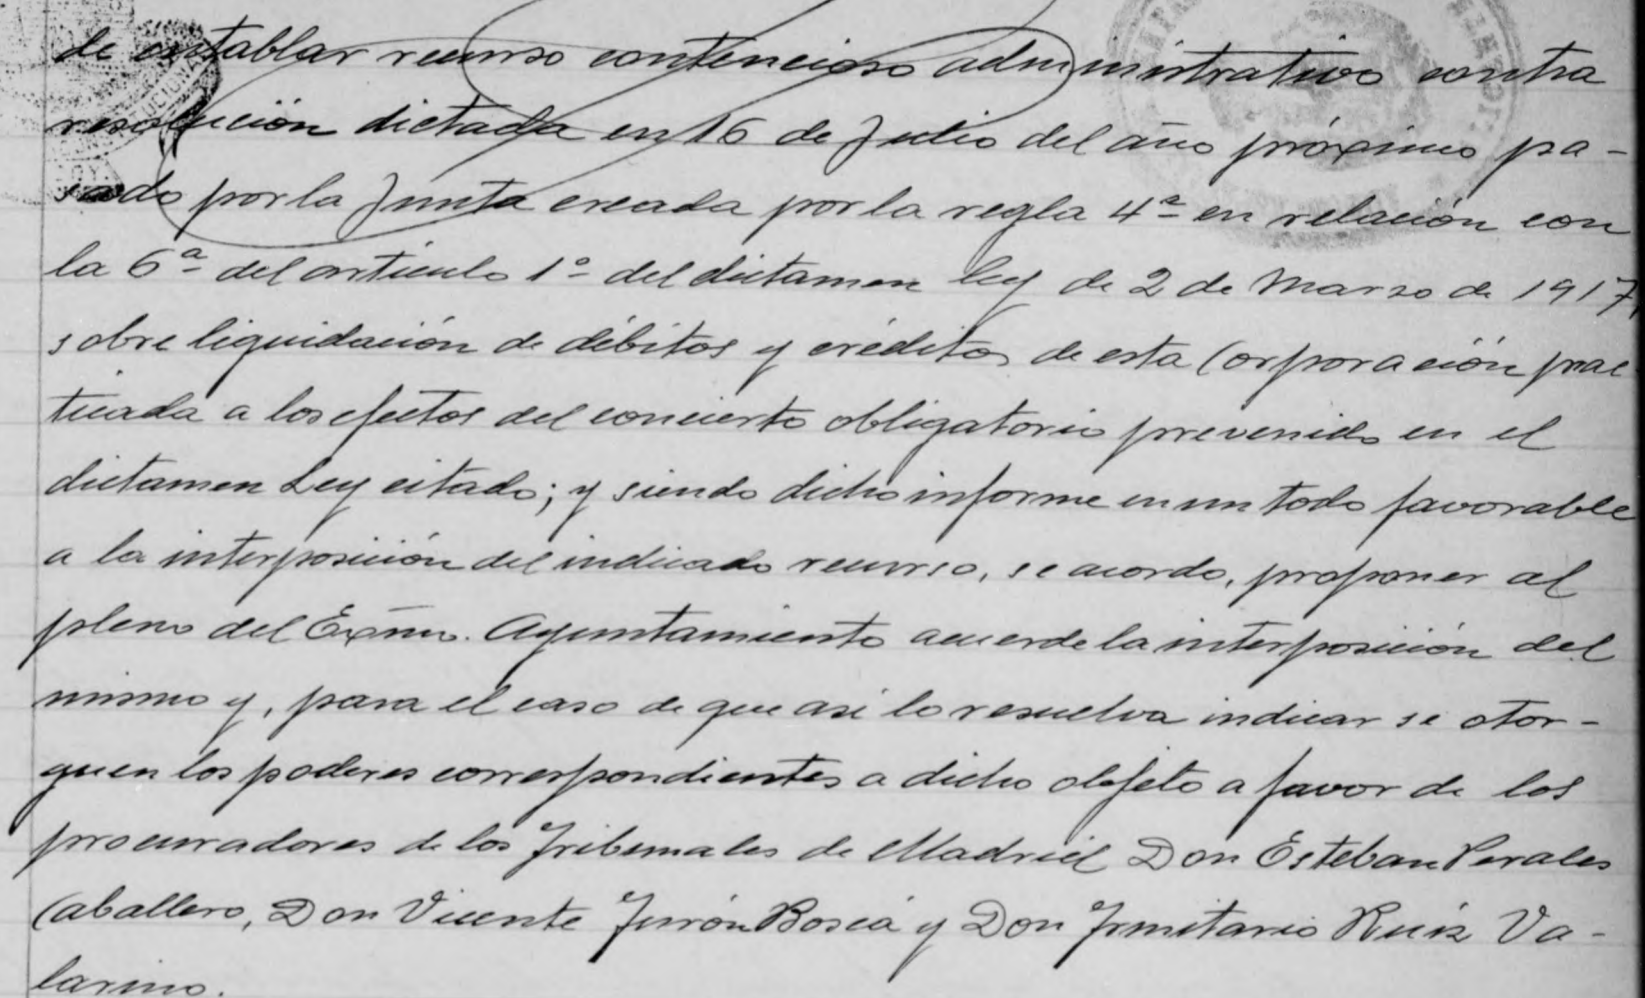 de entablar recurso contencioso administrativo contra
resolución dictada en 16 de Julio del año próximo pa-
sado por la Junta creada por la regla 4ª en relación con
la 6ª del artículo 1º del dictamen ley de 2 de Marzo de 1917,
sobre liquidación de débitos y créditos de esta Corporación prac
ticada a los efectos del concierto obligatorio prevenido en el
dictamen Ley citado; y siendo dicho informe en un todo favorable
a la interposición del indicado recurso, se acordo, proponer al
pleno del Excmo. Ayuntamiento acuerde la interposición del
mismo y, para el caso de que asi lo resuelva indicar se otor-
guen los poderes correspondientes a dicho objeto a favor de los
procuradores de los Tribunales de Madrid Don Esteban Perales
Caballero, Don Vicente Turón Boscá y Don Ruiz Va-
larino.